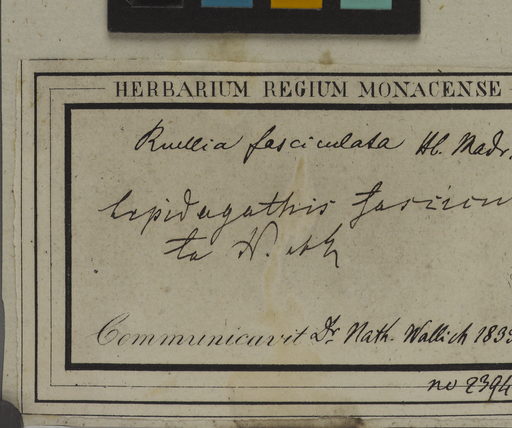 HERBARIUM REGIUM MONACENSE
Ruellia fasciculata Hb. Madr.
Lepidagathis fascicu
ta N. ab
Communicavit Dr. Nath. Wallich 183
no 2394